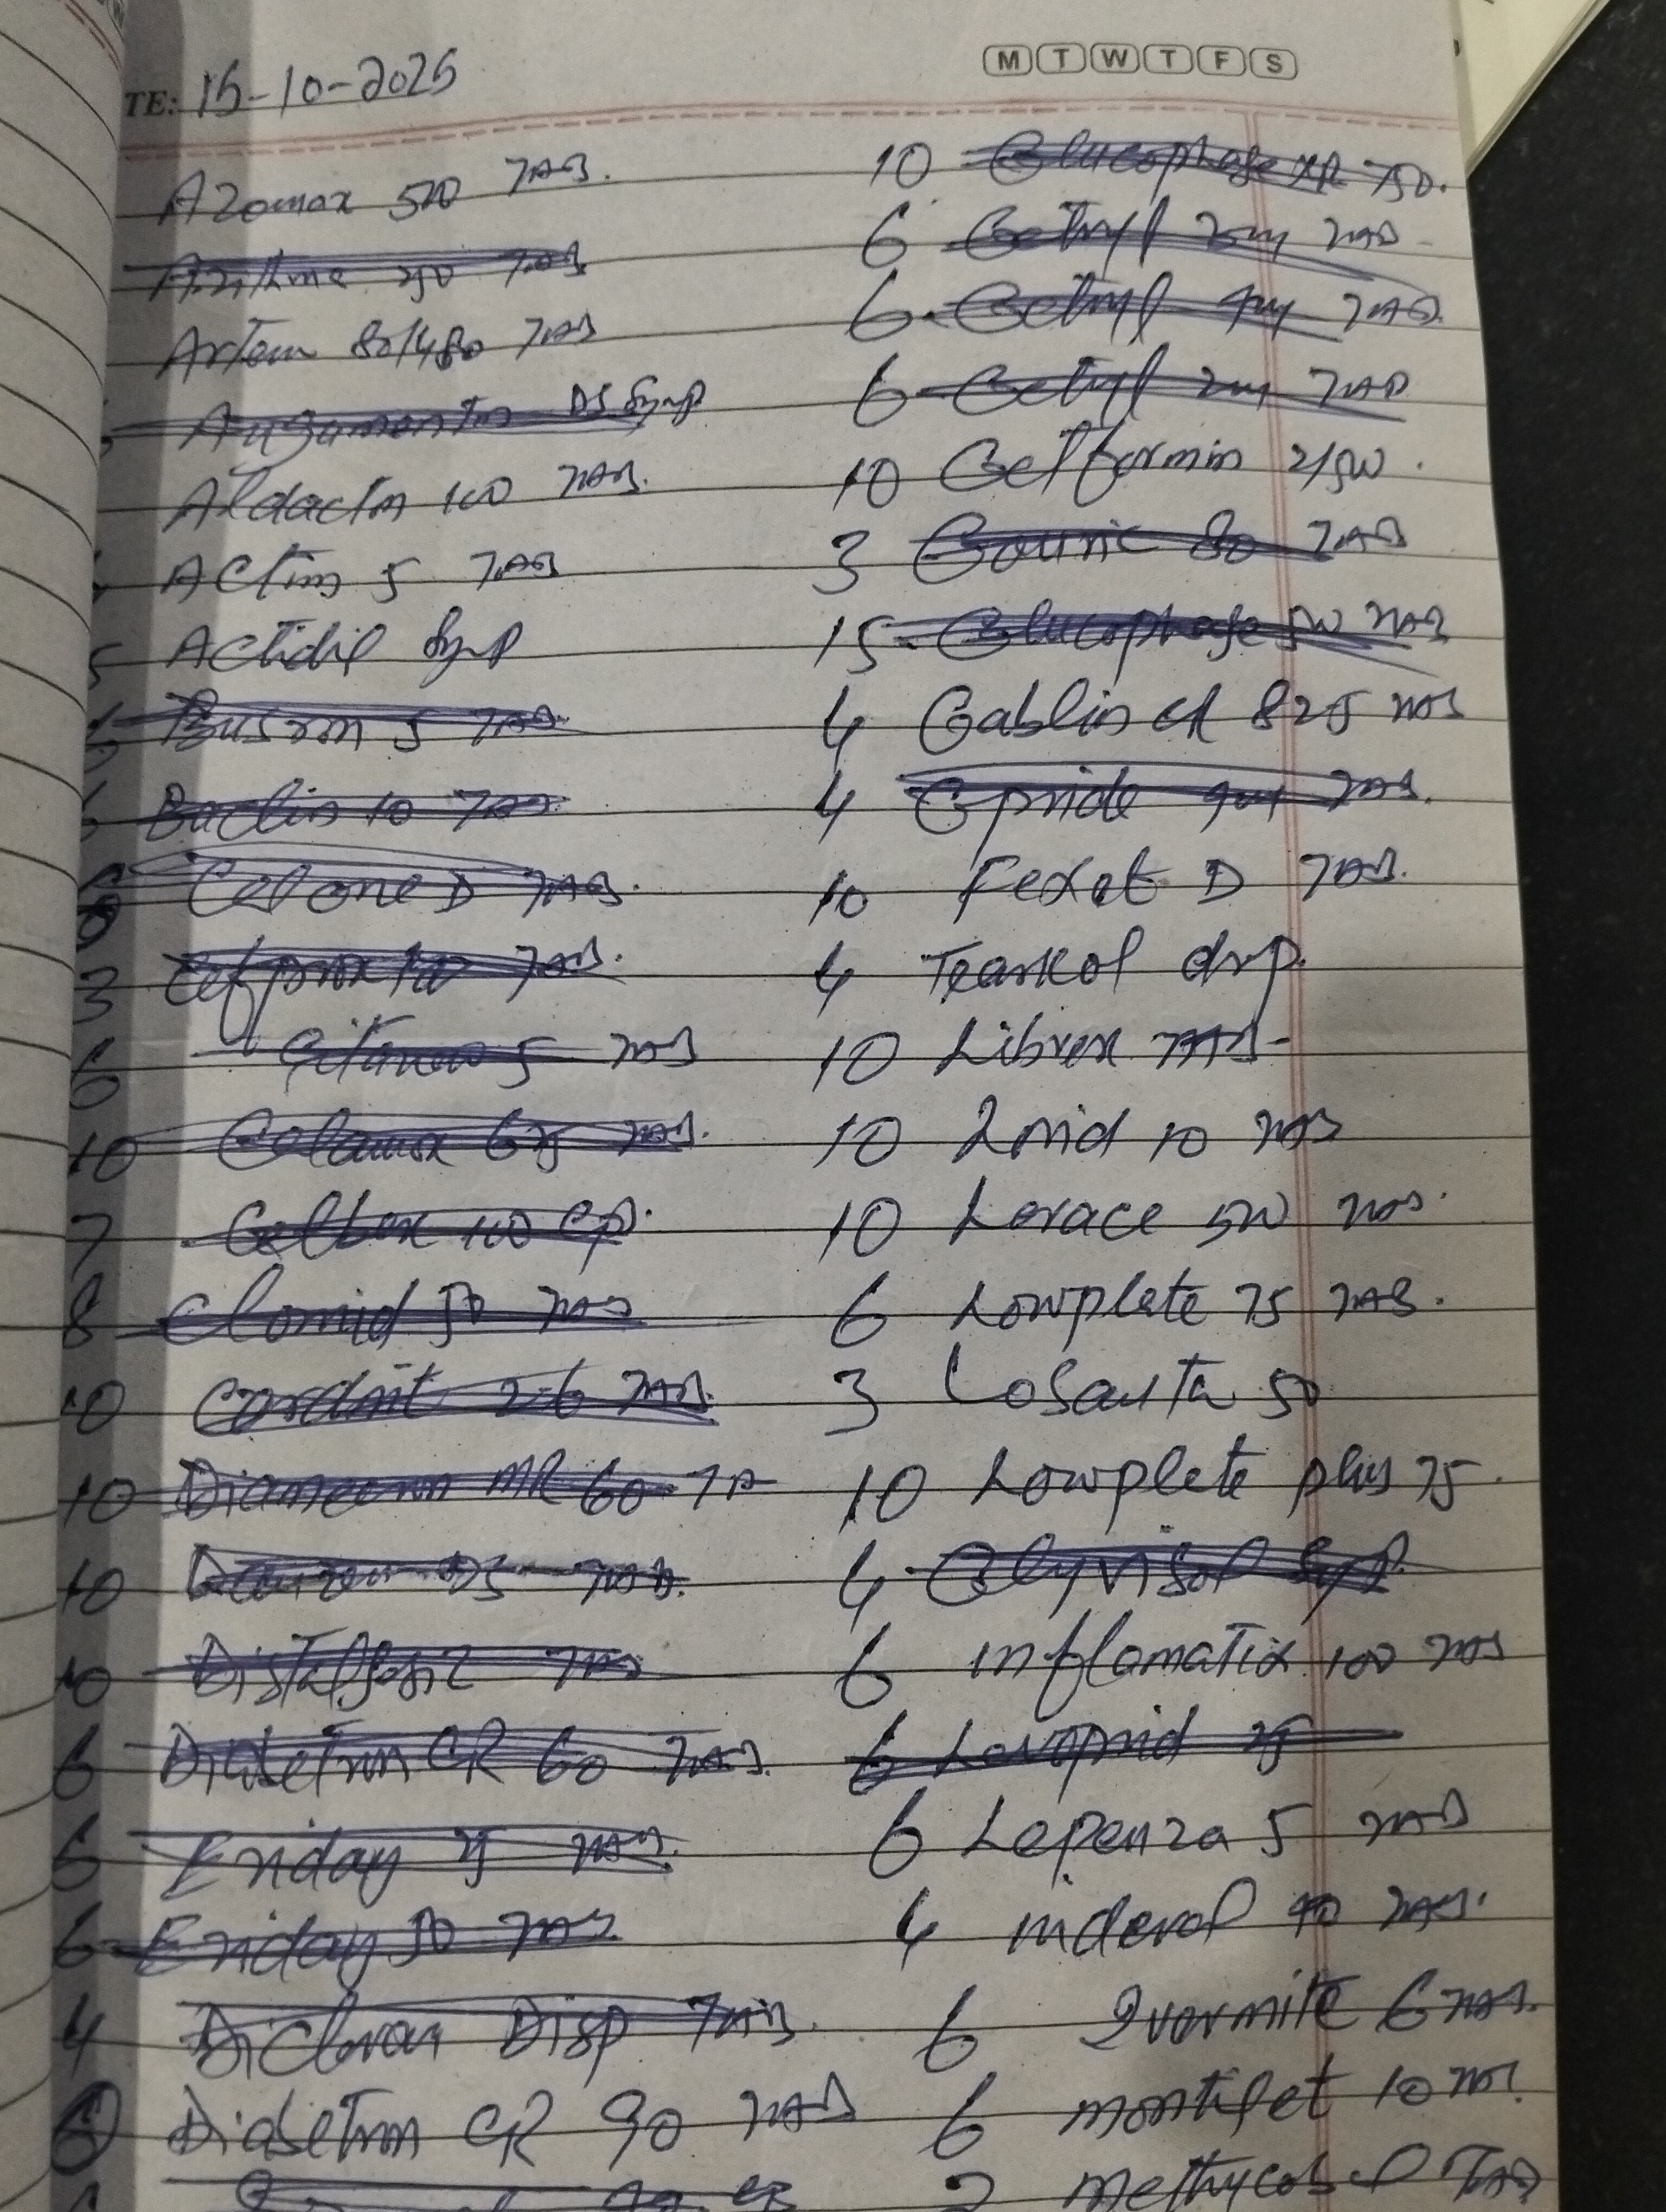 TE: 15-10-2025
M T W T F S
Azomax 500 TAB.
TAB
Artem 80/480 TAB
Augamentin DS Syrp
Aldactin 100 TAB.
Actim 5 TAB
5 Actidil Syrp
Busron 5 TAB
Baclin 10 TAB
Cefone D TAB.
3 TAB.
6 5 TAB
10 Calamox 625 TAB.
7 Celbex 100 Cp.
8 Clomid 50 TAB
10 Cardnit 2.6 TAB.
10 Diamecron MR 60 TA
10 Danzen DS TAB.
10 Distalgesic TAB
6 Diabetron CR 60 TAB.
6 Friday 25 TAB.
6 Friday 50 TAB.
4 Dicloran Disp TAB.
6 Diabetron CR 90 TAB
10 Glucophage XR 750.
6 Getryl 3mg TAB
6 Getryl 4mg TAB.
6 Getryl 2mg TAB
10 Getformin 2/500.
3 Gouric 80 TAB
15 Glucophage 500 TAB
4 Gablin CR 825 TAB
4 Gpride 4mg TAB.
10 Fexet D TAB.
4 Tearkol drp.
10 Librex TAB
10 Lorid 10 TAB
10 Lerace 500 TAB.
6 Lowplate 75 TAB.
3 Losarta 50
10 Lowplete plus 75.
4 Glyvisol Syp.
6 inflamatix 100 TAB
6 Levoprid 25
6 Lepenza 5 TAB
4 inderal 40 TAB.
6 Ivermite 6 TAB.
6 montiget 10 TAB.
2 methycobal TAB